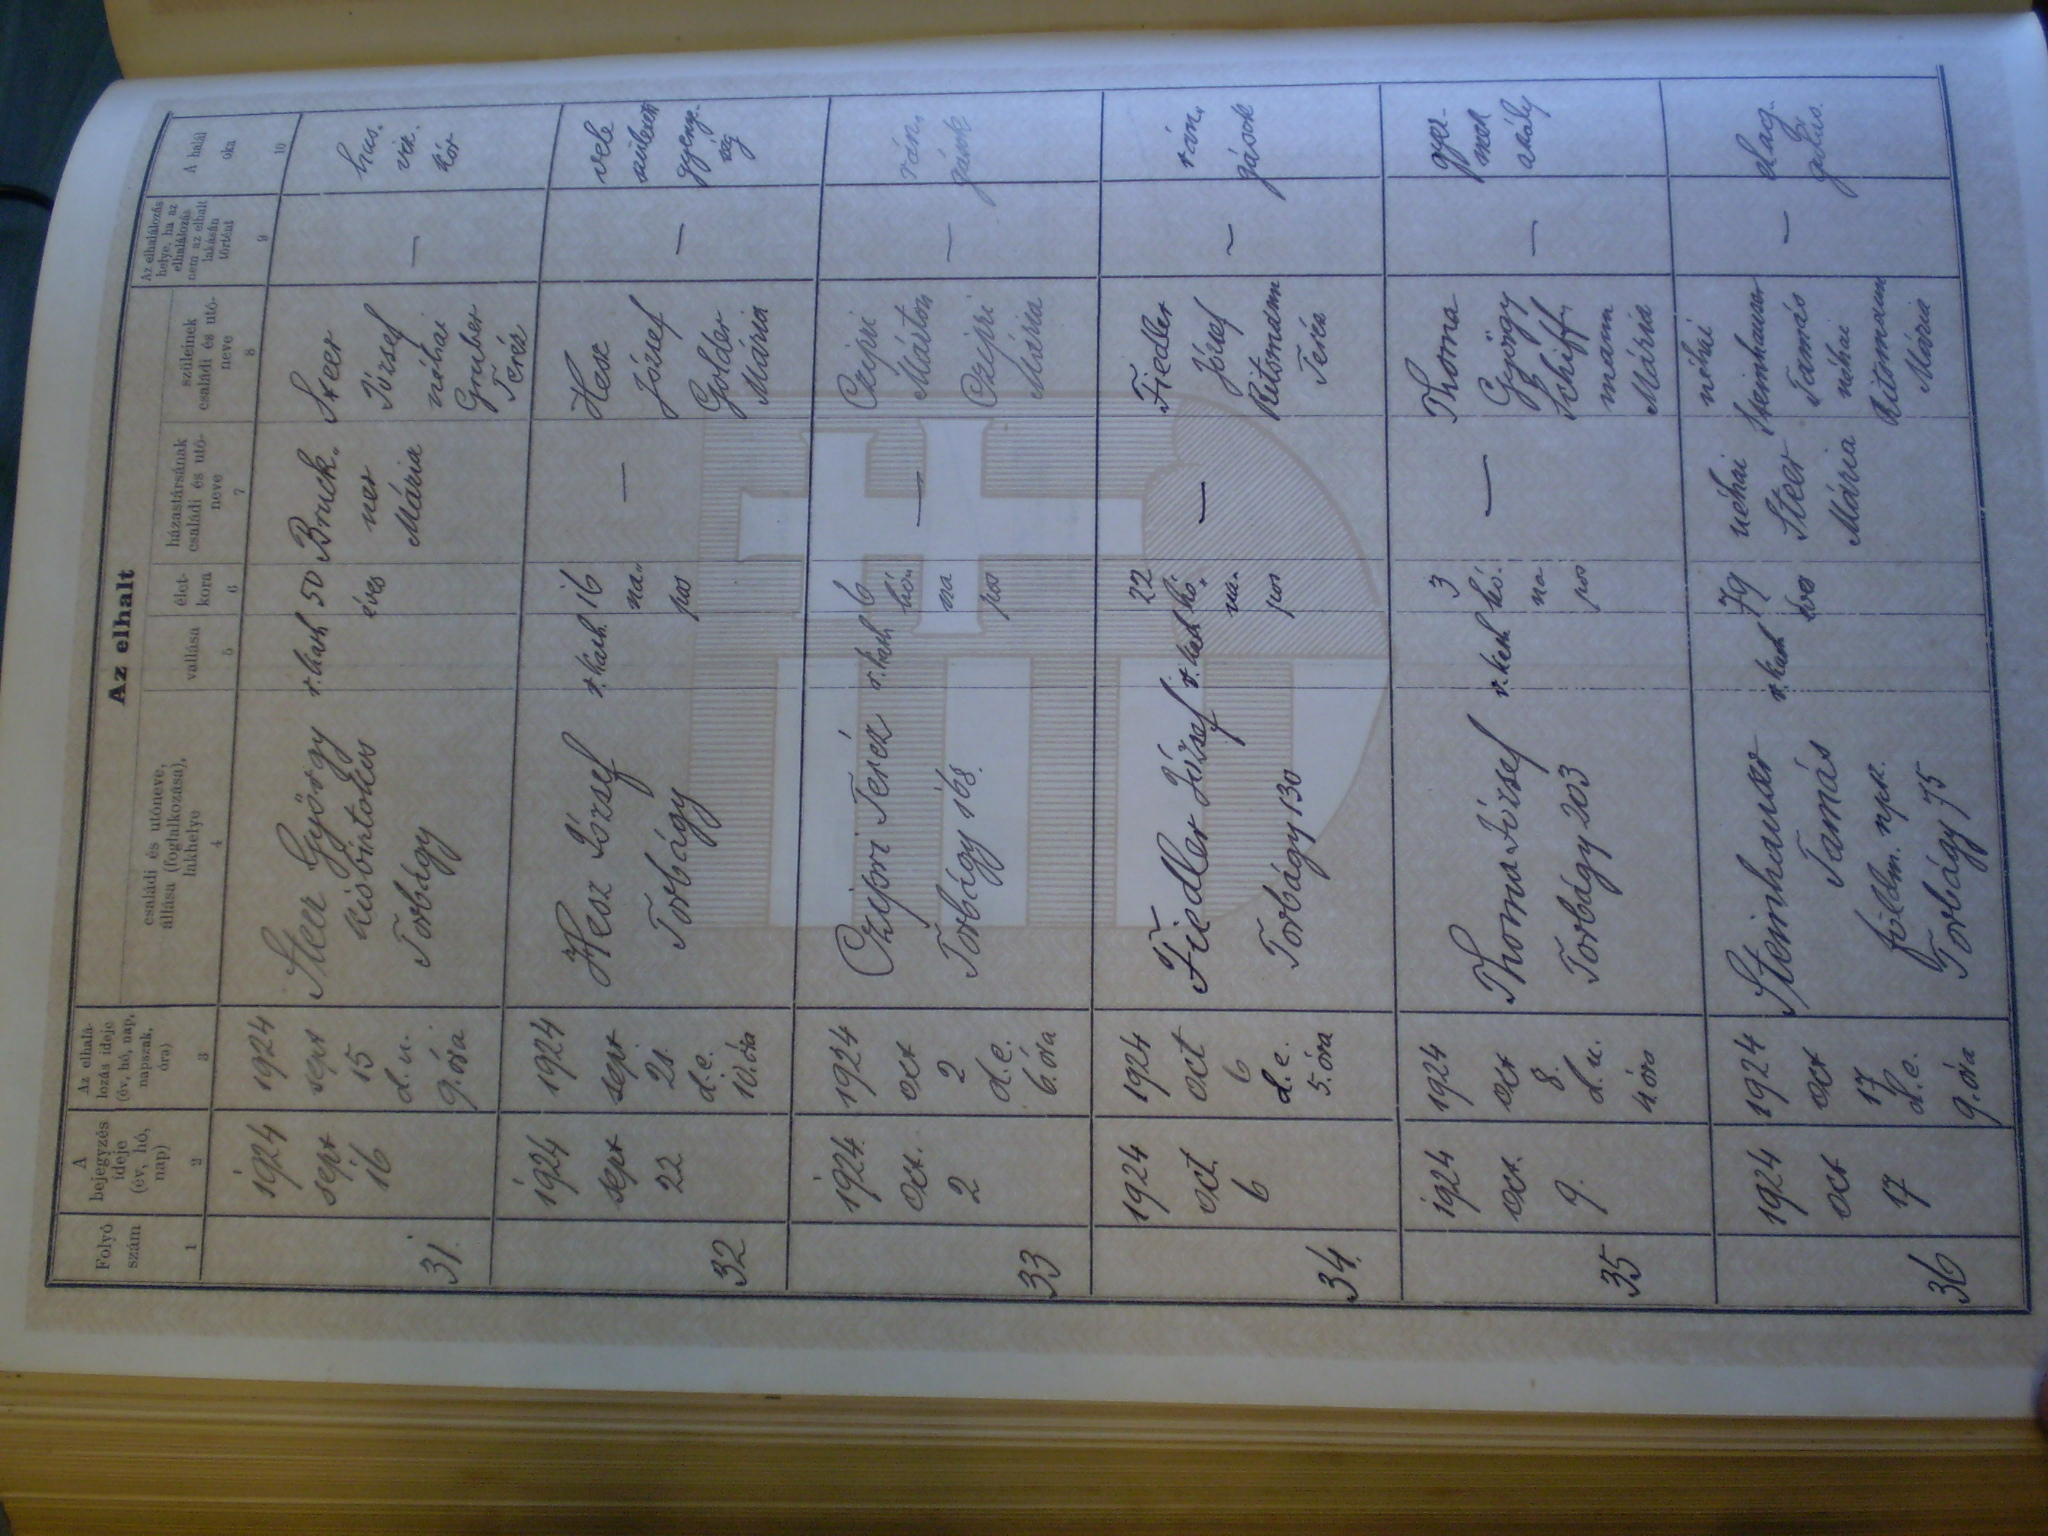 Az elhalt
Folyó
szám
A
bejegyzés
ideje
(év, hó,
nap)
Az elhalá-
lozás ideje
(év, hó, nap,
napszak,
óra)
családi és utóneve,
állása (foglalkozása),
lakhelye
vallása
élet-
kora
házastársának
családi és utó-
neve
szüleinek
családi és utó-
neve
Az elhalálozás
helye, ha az
elhalálozás
nem az elhalt
lakásán
történt
A halál
oka
1
2
3
4
5
6
7
8
9
10
31.
1924
sept
16
1924
sept
15
d.u.
9.óra
Steer György
kisbirtokos
Torbágy
r.kath
50
éves
Bruck.
ner
Mária
Steer
József
néhai
Gruber
Teréz
—
kór
32
1924
sept
22
1924
sept
21.
d.e.
10.óra
Hesz József
Torbágy
r.kath.
16
na..
pos
—
Hesz
József
Golder
Mária
—
vele
született
gyenge-
ség
33
1924.
oct.
2
1924
oct
2
d.e.
6.óra
Czipri Teréz
Torbágy 168.
r.kath
6
hó..
na
pos
—
Czipri
Márton
Czipri
Mária
—
rán.
gások
34.
1924
oct.
6
1924
oct
6
d.e.
5.óra
Fiedler József
Torbágy 130
r.kath
22
hó.
na.
pos
—
Fiedler
József
Ritsmann
Teréz
—
rán.
gások
35
1924
oct.
9.
1924
oct
8.
d.u.
4.óra
Thoma József
Torbágy 203
r.kath
3
hó.
na
pos
—
Thoma
György
Schiff
mann
Mária
—
gyer-
mek
aszály
36
1924
oct
17
1924
oct
17
d.e.
9.óra
Steinhauser
Tamás
földm. nps.
Torbágy 75
r.kath
79
éves
néhai
Steer
Mária
néhai
Steinhauser
Tamás
néhai
Ritsmann
Mária
—
elag-
gulás.